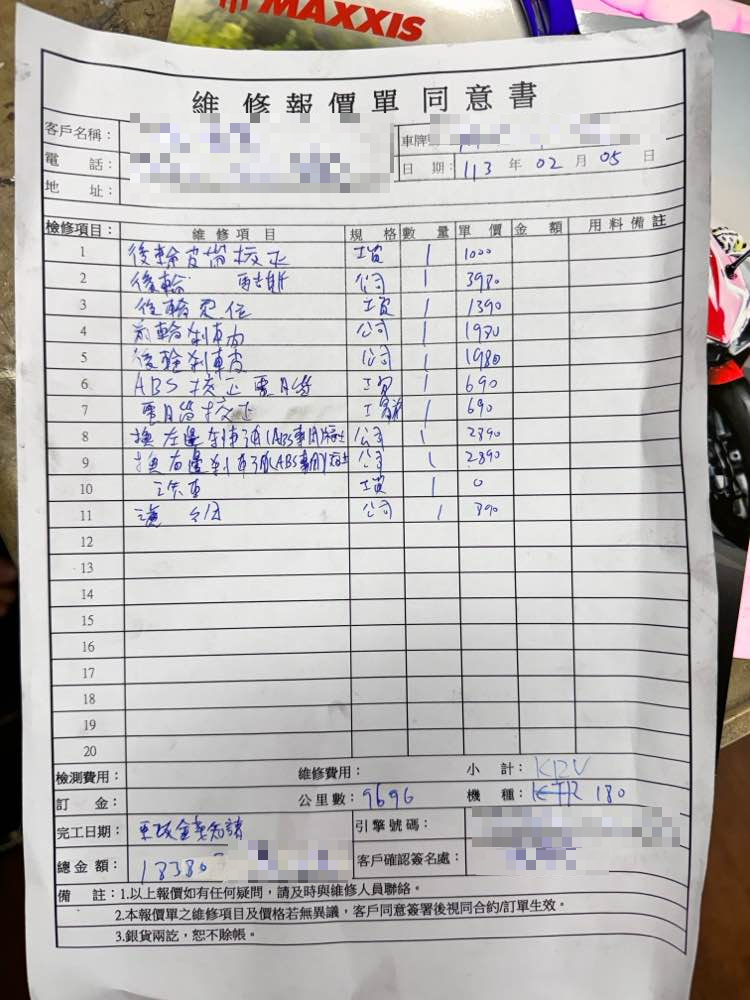 MAXXIS
維修報價單同意書
客戶名稱：
車牌號
電 話：
日 期：113 年 02 月 05 日
地 址：
檢修項目： 維修項目 規格 數量 單價 金額 用料備註
1 後輪皮帶校正 工資 1 1000
2 後輪 公司 1 3980
3 後輪定位 工資 1 1390
4 前輪剎車 公司 1 1980
5 後輪剎車皮 公司 1 1980
6 ABS 校正電腦 工資 1 690
7 電腦校正 工資 1 690
8 換左邊剎車油(ABS專用) 公司 1 2890
9 換右邊剎車油(ABS專用) 公司 1 2890
10 洗車 工資 1 0
11 公司 1 390
12
13
14
15
16
17
18
19
20
檢測費用： 維修費用： 小 計：KRV
訂 金： 公里數：9696 機 種：KTR 180
完工日期： 引擎號碼：
總金額：18380 客戶確認簽名處：
備 註：1.以上報價如有任何疑問，請及時與維修人員聯絡。
2.本報價單之維修項目及價格若無異議，客戶同意簽署後視同合約/訂單生效。
3.銀貨兩訖，恕不賒帳。